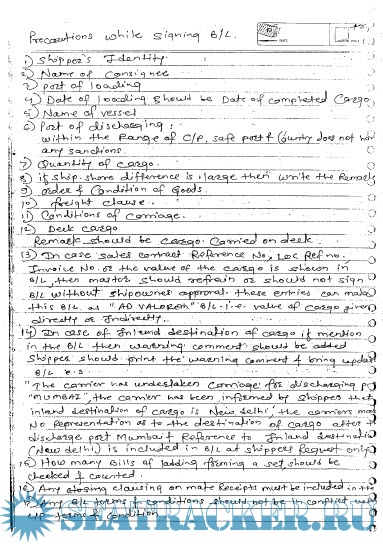 Precautions while signing B/L.
1) Shipper's Identity
2) Name of Consignee
3) port of loading
4) Date of loading should be Date of completed Cargo
5) Name of vessel
6) Port of discharging:
within the Range of C/P, safe port & Country does not hav
any sanctions.
7) Quantity of cargo.
8) if ship shore difference is large then write the Remark
9) order & Condition of Goods.
10) freight clause
11) Conditions of carriage.
12) Deck cargo
Remark should be cargo carried on deck.
13) In case sales contract Reference No, LOC Ref no.
Invoice No. or the value of the cargo is shown in
B/L, then master should refrain or should not sign
B/L without shipowner approval. these entries can make
this B/L as "AD VALOREM" B/L i.e. value of cargo given
directly or Indirectly.
14) In case of Inland destination of cargo if mention
in the B/L then warning comment should be added
shipper should print the warning comment & bring updat
B/L e.g.
"The carrier has undertaken Carriage for discharging p
"MUMBAI", the carrier has been informed by Shipper that
inland destination of cargo is New delhi, the carriers may
No Representation as to the destination of cargo after th
discharge port Mumbai & Reference to Inland destinatio
(New delhi) is included in B/L at shippers Request only
15) How many Bills of ladding forming a set should be
checked & counted.
16) Any clausing on mate Receipts must be included in the
17) Any B/L terms & conditions should not be in conflict with
C/P terms & condition
TRACKER.RU